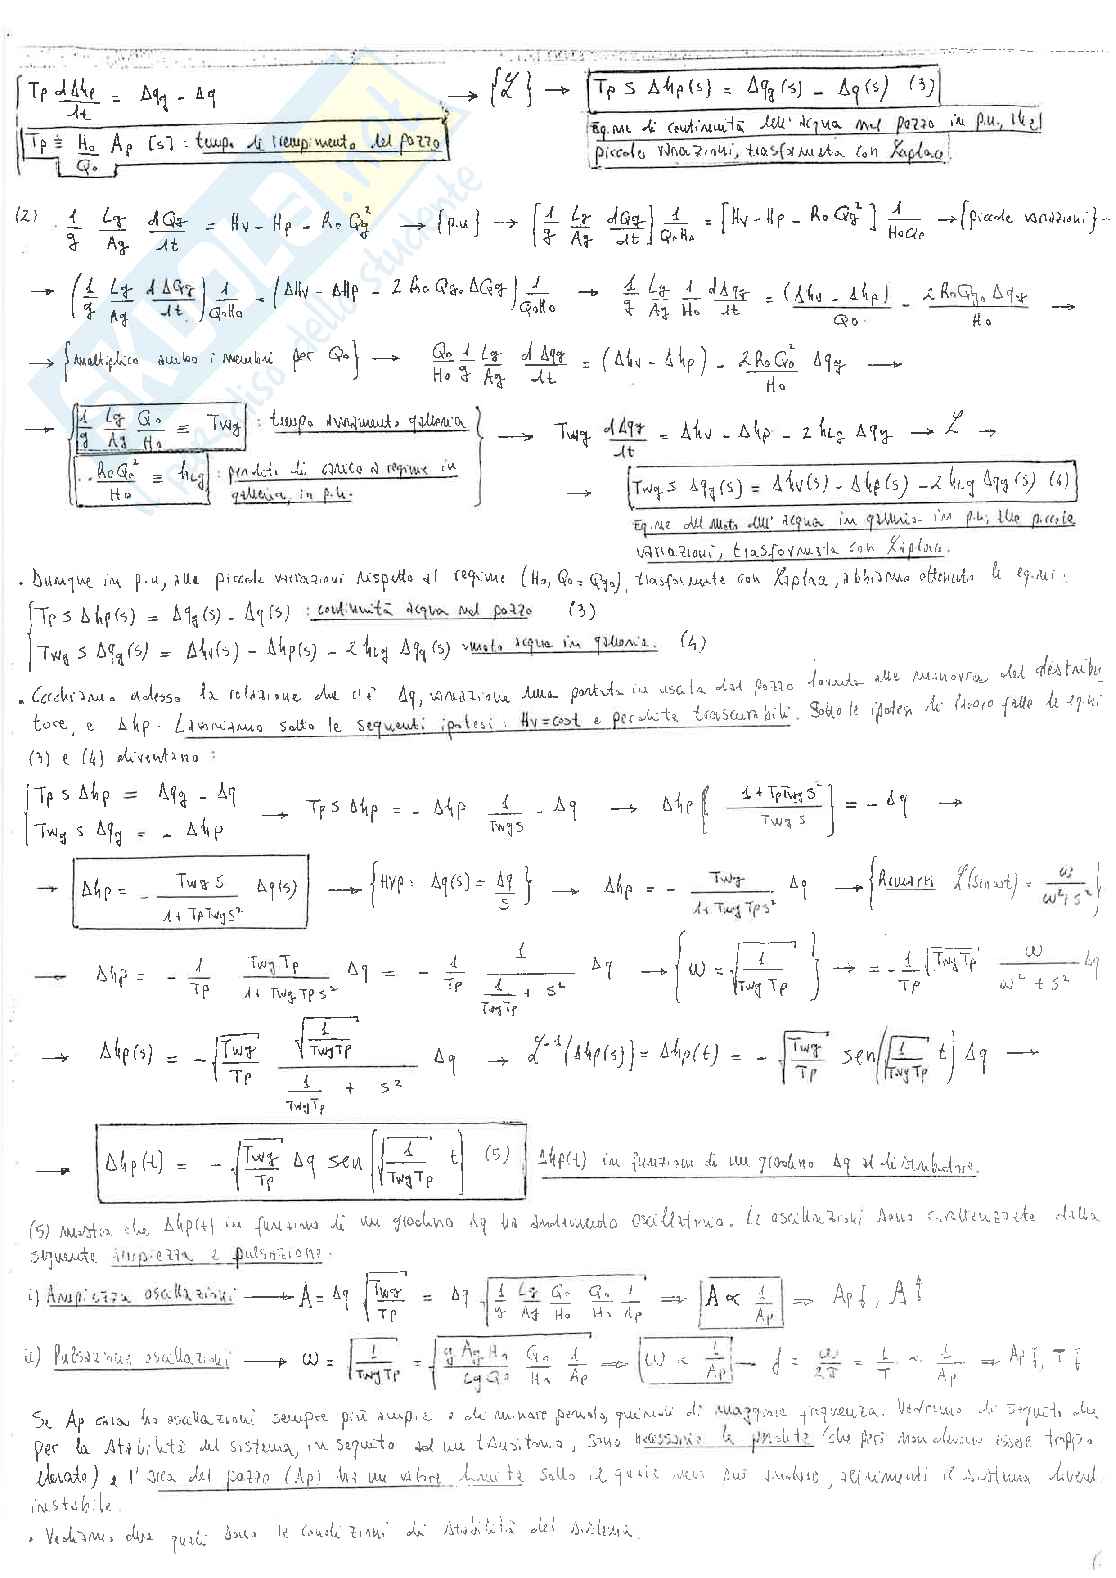 Tp dΔhp/dt = Δqg - Δq → {ℒ} → Tp s Δhp(s) = Δqg(s) - Δq(s) (3)
Tp ≡ Ho/Qo Ap [s] : tempo di riempimento del pozzo
Eq.ne di continuità dell'acqua nel pozzo in p.u., alle
piccole variazioni, trasformata con Laplace.
(2) 1/g Lg/Ag dQg/dt = Hv - Hp - Ro Qg² → {p.u} → [1/g Lg/Ag dQg/dt] 1/QoHo = [Hv - Hp - Ro Qg²] 1/HoQo → {piccole variazioni} -
→ (1/g Lg/Ag dΔQg/dt) 1/QoHo = (ΔHv - ΔHp - 2 Ro Qgo ΔQg) 1/QoHo → 1/g Lg/Ag 1/Ho dΔqg/dt = (Δhv - Δhp)/Qo - 2RoQgo Δqg/Ho →
→ {moltiplico ambo i membri per Qo} → Qo/Ho 1/g Lg/Ag dΔqg/dt = (Δhv - Δhp) - 2RoQo²/Ho Δqg →
→ {1/g Lg/Ag Qo/Ho ≡ Twg : tempo avviamento galleria
RoQo²/Ho ≡ hLg : perdite di carico a regime in
galleria, in p.u.}
→ Twg dΔqg/dt = Δhv - Δhp - 2 hLg Δqg → ℒ →
→ Twg s Δqg(s) = Δhv(s) - Δhp(s) - 2hLg Δqg(s) (4)
Eq.ne del moto dell'acqua in galleria in p.u., alle piccole
variazioni, trasformata con Laplace.
• Dunque in p.u, alle piccole variazioni rispetto al regime (Ho, Qo = Qgo), trasformate con Laplace, abbiamo ottenuto le eq.ni:
{Tp s Δhp(s) = Δqg(s) - Δq(s) : continuità acqua nel pozzo (3)
{Twg s Δqg(s) = Δhv(s) - Δhp(s) - 2hLg Δqg(s) moto acqua in galleria. (4)
• Cerchiamo adesso la relazione che c'è Δq, variazione della portata in uscita dal pozzo dovuta alle manovra del distribu
tore, e Δhp. Lavoriamo sotto le seguenti ipotesi: Hv=cost e perdite trascurabili. Sotto le ipotesi di lavoro fatte le eq.ni
(3) e (4) diventano:
{Tp s Δhp = Δqg - Δq
{Twg s Δqg = - Δhp
→ Tp s Δhp = - Δhp 1/Twg s - Δq → Δhp [1 + TpTwg s²/Twg s] = - Δq →
→ Δhp = - Twg s/1 + TpTwg s² Δq(s) → {Hyp: Δq(s) = Δq/s} → Δhp = - Twg/1 + Twg Tp s² Δq → {Remark: ℒ(sinωt) = ω/ω²+s²}
→ Δhp = - 1/Tp Twg Tp/1 + Twg Tp s² Δq = - 1/Tp 1/(1/TwgTp + s²) Δq → {ω = √(1/Twg Tp)} → = - 1/Tp √(Twg Tp) ω/ω² + s² Δq
→ Δhp(s) = - √(Twg/Tp) √(1/Twg Tp)/(1/Twg Tp + s²) Δq → ℒ⁻¹{Δhp(s)} = Δhp(t) = - √(Twg/Tp) sen(√(1/Twg Tp) t) Δq →
→ Δhp(t) = - √(Twg/Tp) Δq sen(√(1/Twg Tp) t) (5) Δhp(t) in funzione di un gradino Δq al distributore.
(5) mostra che Δhp(t) in funzione di un gradino Δq ha andamento oscillatorio. Le oscillazioni sono caratterizzate dalla
seguente ampiezza e pulsazione.
i) Ampiezza oscillazioni → A = Δq √(Twg/Tp) = Δq √(1/g Lg/Ag Qo/Ho Qo/Ho 1/Ap) ⇒ A ∝ 1/Ap ⇒ Ap↓, A↑
ii) Pulsazione oscillazioni → ω = √(1/Twg Tp) = √(g Ag Ho/Lg Qo Qo/Ho 1/Ap) ⇒ ω ∝ 1/Ap → f = ω/2π = 1/T ∝ 1/Ap ⇒ Ap↓, T↓
Se Ap cala ho oscillazioni sempre più ampie e di minore periodo, quindi di maggiore frequenza. Vedremo di seguito che
per la stabilità del sistema, in seguito ad un transitorio, sono necessarie le perdite (che però non devono essere troppo
elevate) e l'area del pozzo (Ap) ha un valore limite sotto il quale non può andare, altrimenti il sistema divent
instabile.
• Vediamo ora quali sono le condizioni di stabilità del sistema.
SKUOLA.net
paradiso dello studente